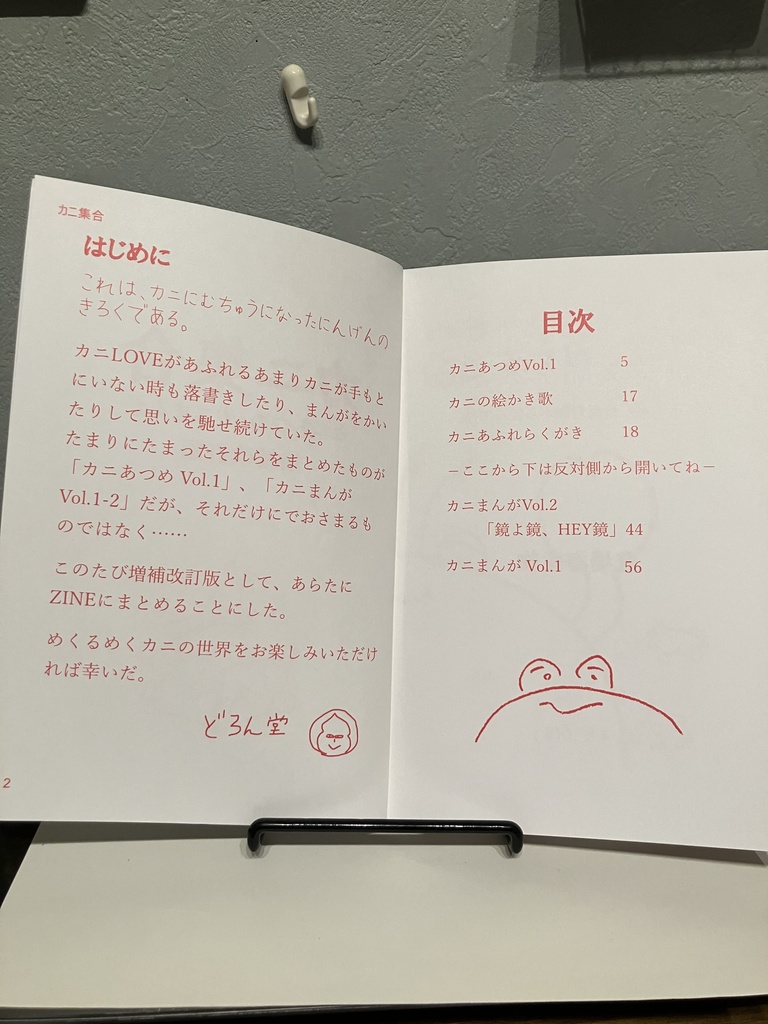 カニ集合
はじめに
これは、カニにむちゅうになったにんげんの
きろくである。
カニLOVEがあふれるあまりカニが手もと
にいない時も落書きしたり、まんがをかい
たりして思いを馳せ続けていた。
たまりにたまったそれらをまとめたものが
「カニあつめ Vol.1」、「カニまんが
Vol.1-2」だが、それだけにでおさまるも
のではなく……
このたび増補改訂版として、あらたに
ZINEにまとめることにした。
めくるめくカニの世界をお楽しみいただけ
れば幸いだ。
どろん堂
2
目次
カニあつめVol.1 5
カニの絵かき歌 17
カニあふれらくがき 18
－ここから下は反対側から開いてね－
カニまんがVol.2
「鏡よ鏡、HEY鏡」44
カニまんが Vol.1 56